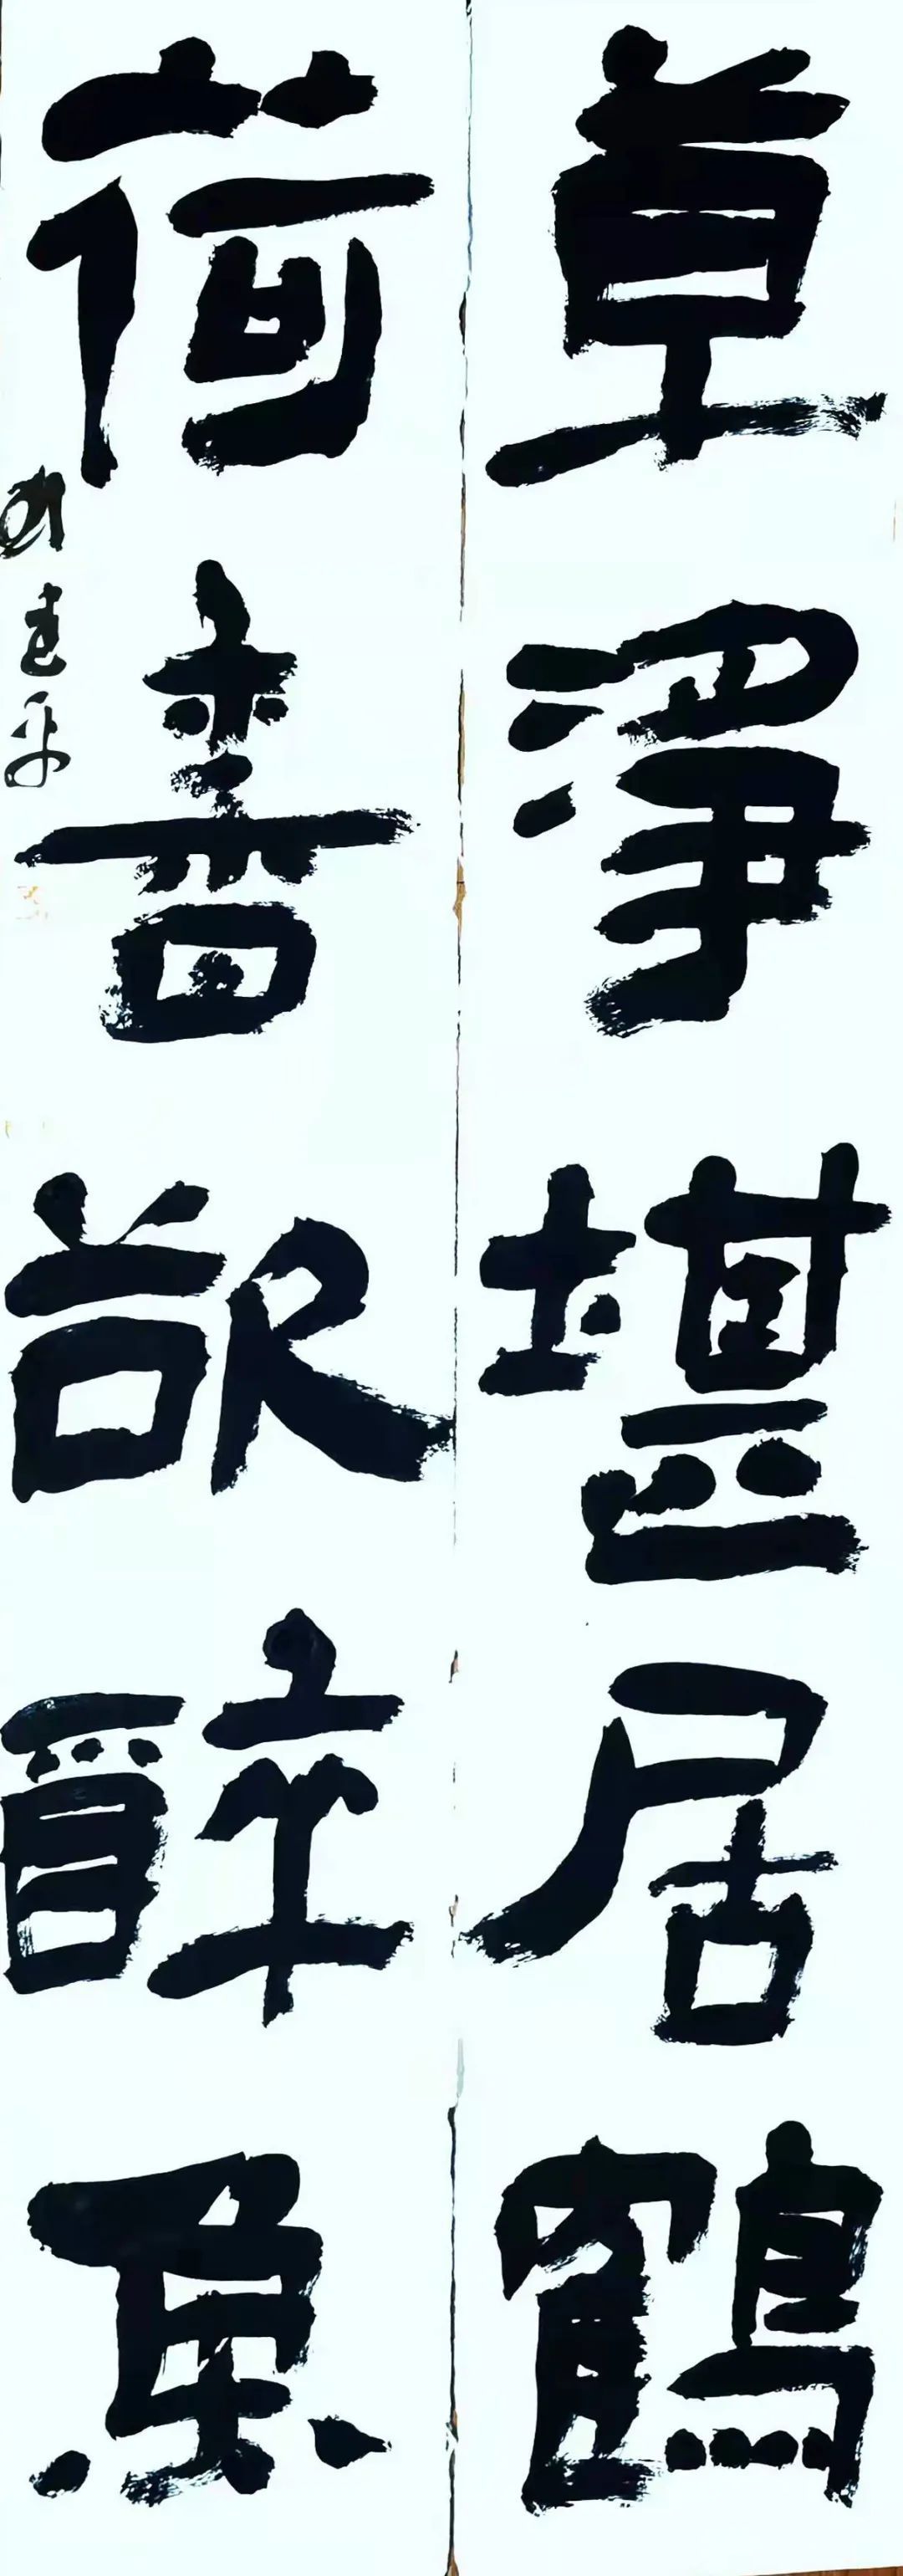 草淨堪居鶴
荷香欲醉魚
建平